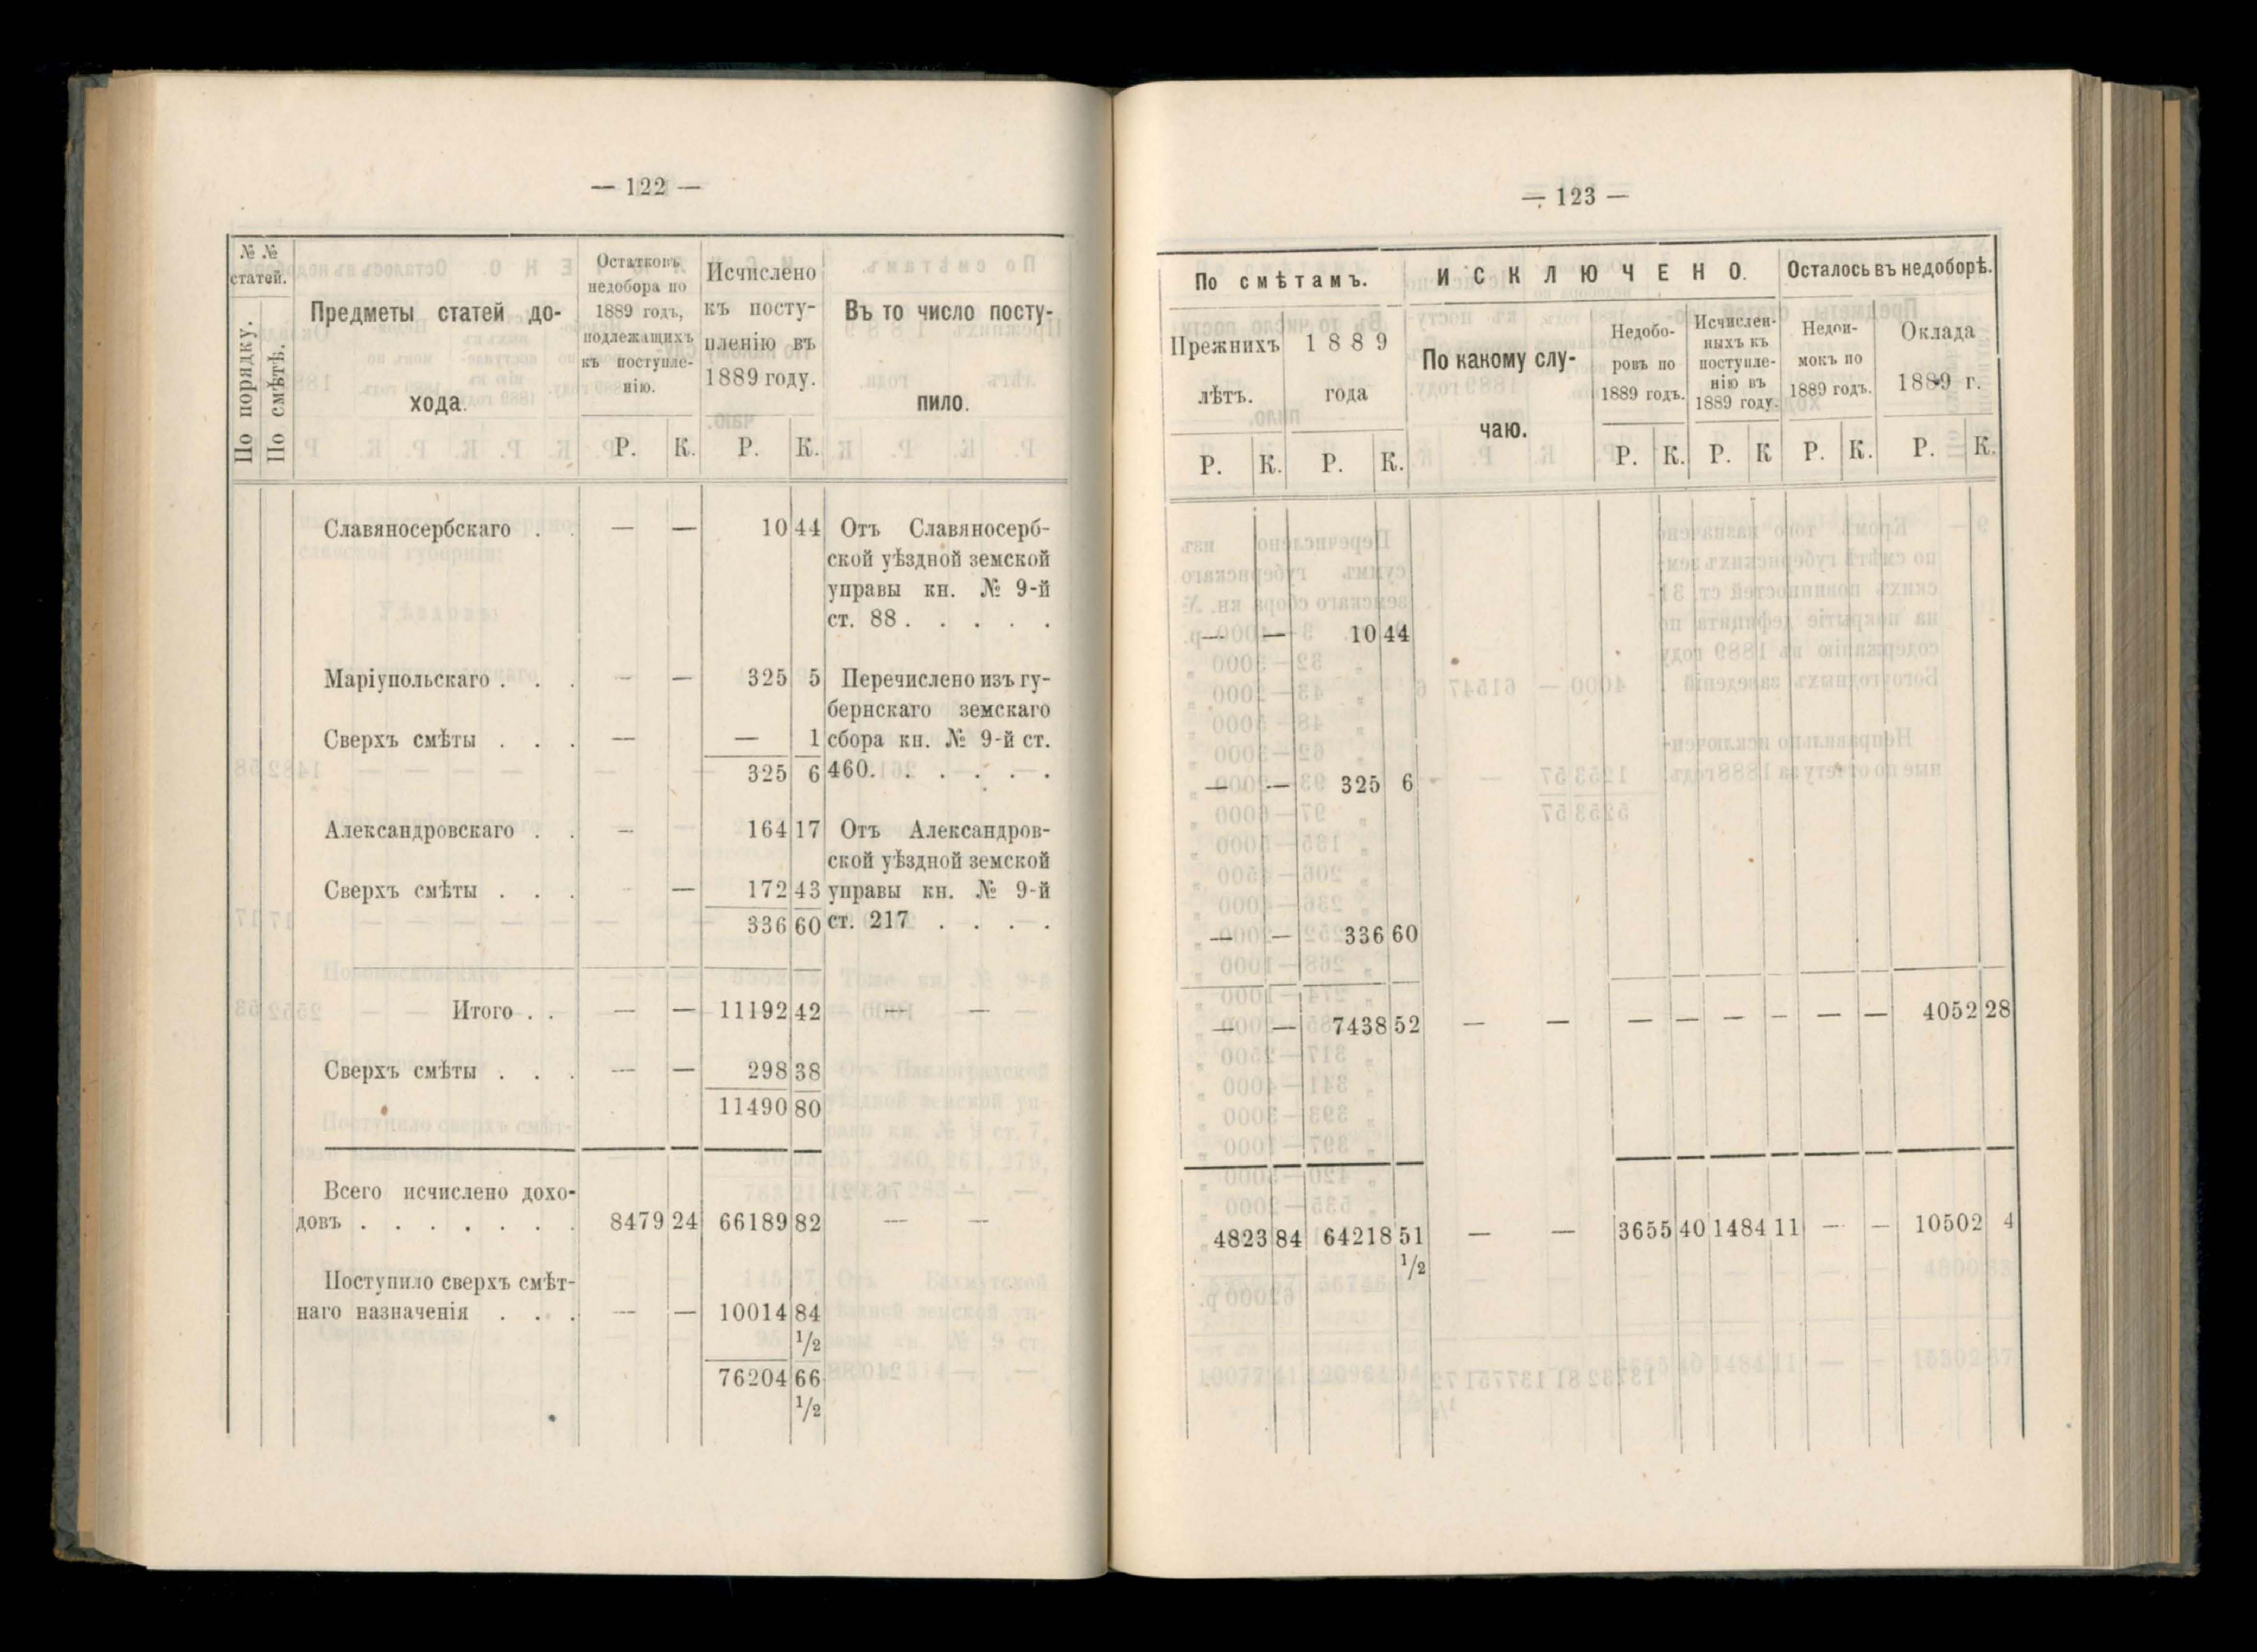 — 122 —
№ №
статей.
По порядку.
По смѣтѣ.
Предметы статей до-
хода.
Остатковъ
недобора по
1889 годъ,
подлежащихъ
къ поступле-
нію.
Исчислено
къ посту-
пленію въ
1889 году.
Въ то число посту-
пило.
Р. К. Р. К.
Славяносербскаго . . — — 10 44 Отъ Славяносерб-
ской уѣздной земской
управы кн. № 9-й
ст. 88 . . . . .
Маріупольскаго . . . — — 325 5 Перечислено изъ гу-
бернскаго земскаго
Сверхъ смѣты . . . — — 1 сбора кн. № 9-й ст.
325 6 460. . . . . .
Александровскаго . . — 164 17 Отъ Александров-
ской уѣздной земской
Сверхъ смѣты . . . - — 172 43 управы кн. № 9-й
336 60 ст. 217 . . . .
Итого . . — — 11192 42 — —
Сверхъ смѣты . . . — — 298 38
11490 80
Всего исчислено дохо-
довъ . . . . . . . 8479 24 66189 82 — —
Поступило сверхъ смѣт-
наго назначенія . . . — — 10014 84
1/2
76204 66
1/2
— 123 —
По смѣтамъ.
ИСКЛЮЧЕНО.
Осталось въ недоборѣ.
Прежнихъ
лѣтъ.
1889
года
По какому слу-
чаю.
Недобо-
ровъ по
1889 годъ.
Исчислен-
ныхъ къ
поступле-
нію въ
1889 году.
Недои-
мокъ по
1889 годъ.
Оклада
1889 г.
Р. К. Р. К. Р. К. Р. К Р. К. Р. К.
— — 10 44
— — 325 6
— — 336 60
— — 7438 52 — — — — — — — — 4052 28
4823 84 64218 51 — — 3655 40 1484 11 — — 10502 4
1/2